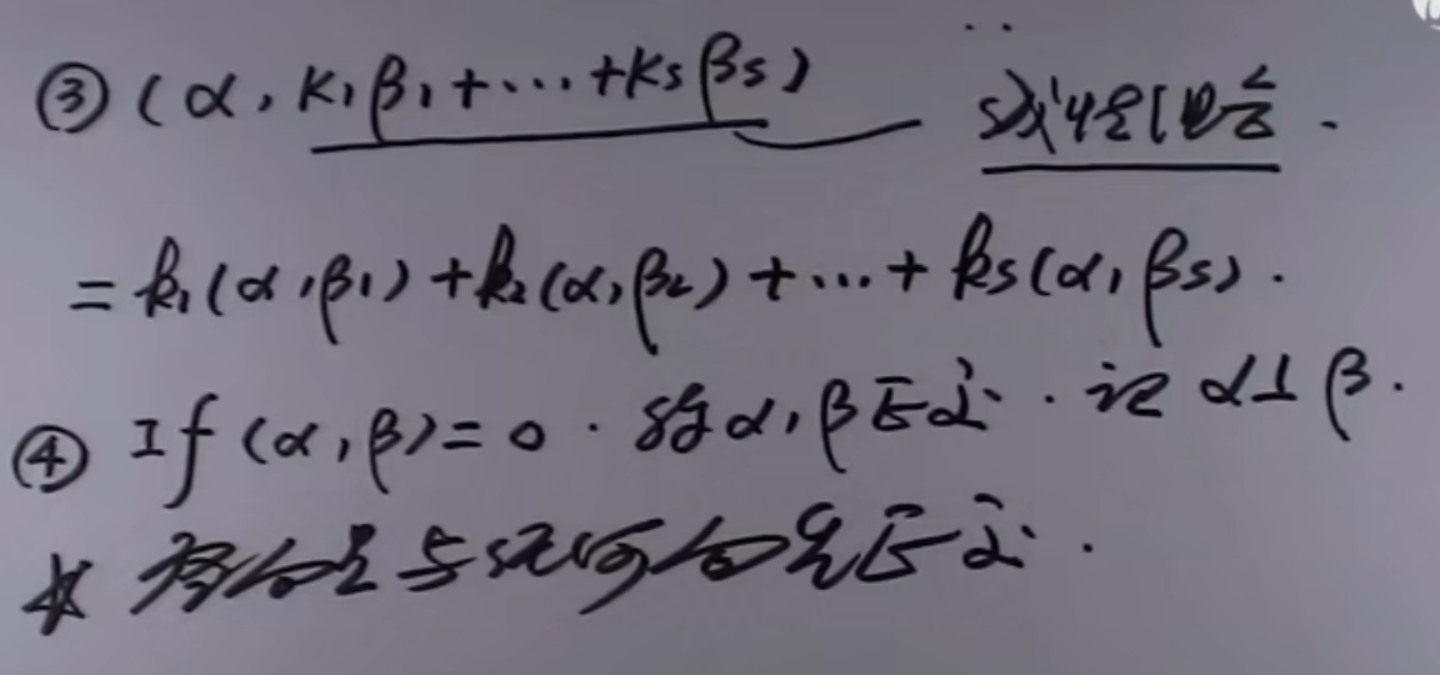 ③ (α, k₁β₁+⋯+ksβs) 线性组合.
= k₁(α,β₁)+k₂(α,β₂)+⋯+ks(α,βs).
④ If (α,β)=0. 称α,β正交. 记 α⊥β.
* 零向量与任何向量正交.